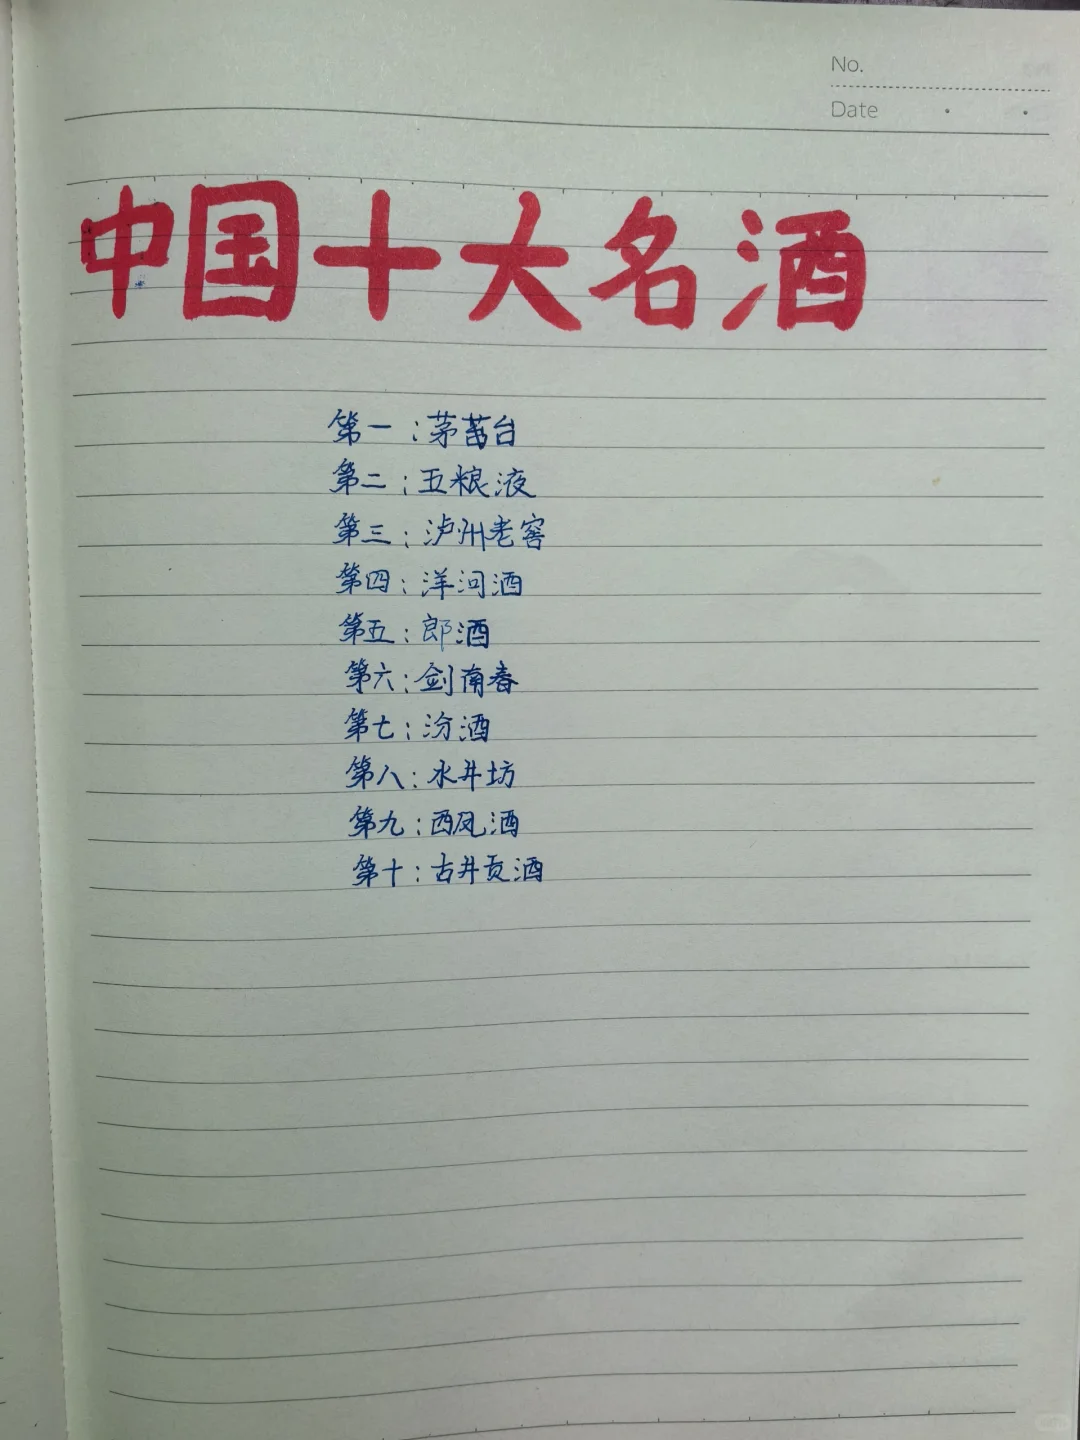 No.
Date
中国十大名酒
第一：茅台
第二：五粮液
第三：泸州老窖
第四：洋河酒
第五：郎酒
第六：剑南春
第七：汾酒
第八：水井坊
第九：西凤酒
第十：古井贡酒